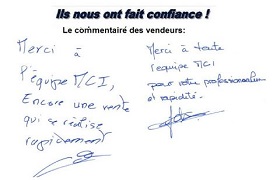 Ils nous ont fait confiance !
Le commentaire des vendeurs:
Merci à
l'équipe MCI,
Encore une vente
qui se réalise
rapidement
Merci à toute
l'equipe MCI
pour votre professionnalisme
et rapidité.